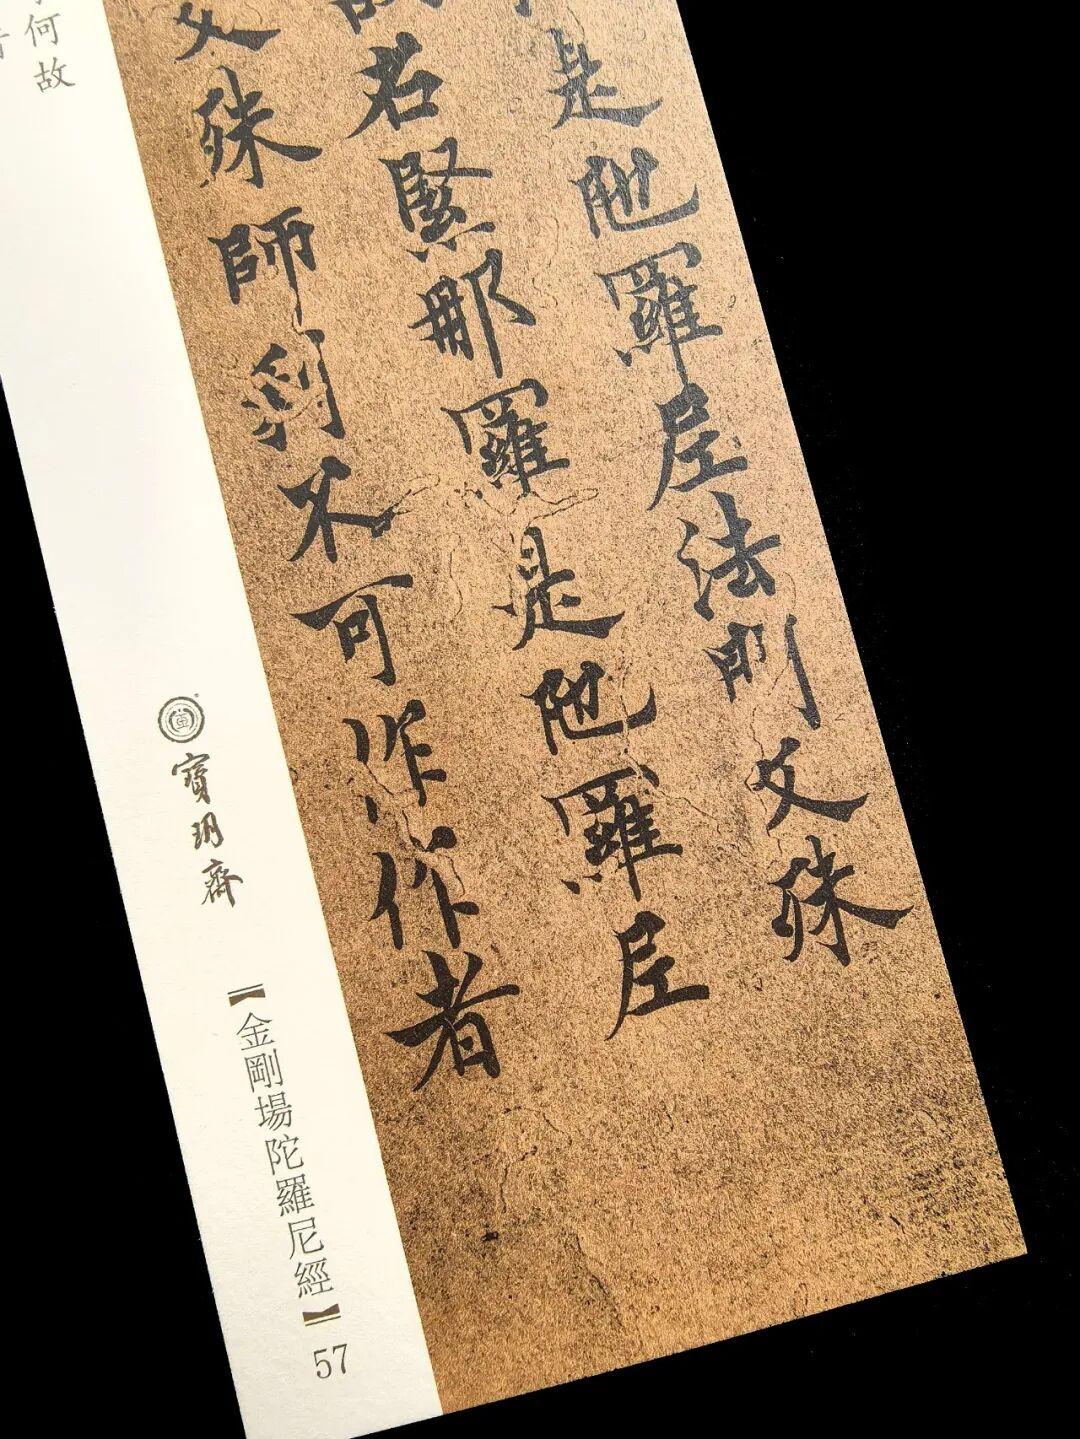 是陁羅尼法門文殊
名緊那羅是陁羅尼
文殊師利不可作作者
何故
寶玥齋
【金剛場陀羅尼經】57